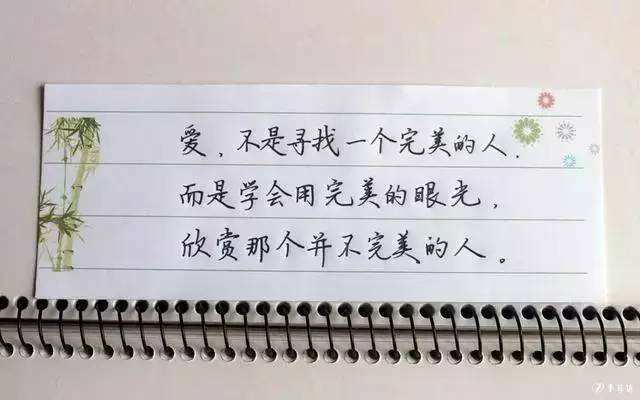 爱，不是寻找一个完美的人．
而是学会用完美的眼光，
欣赏那个并不完美的人。